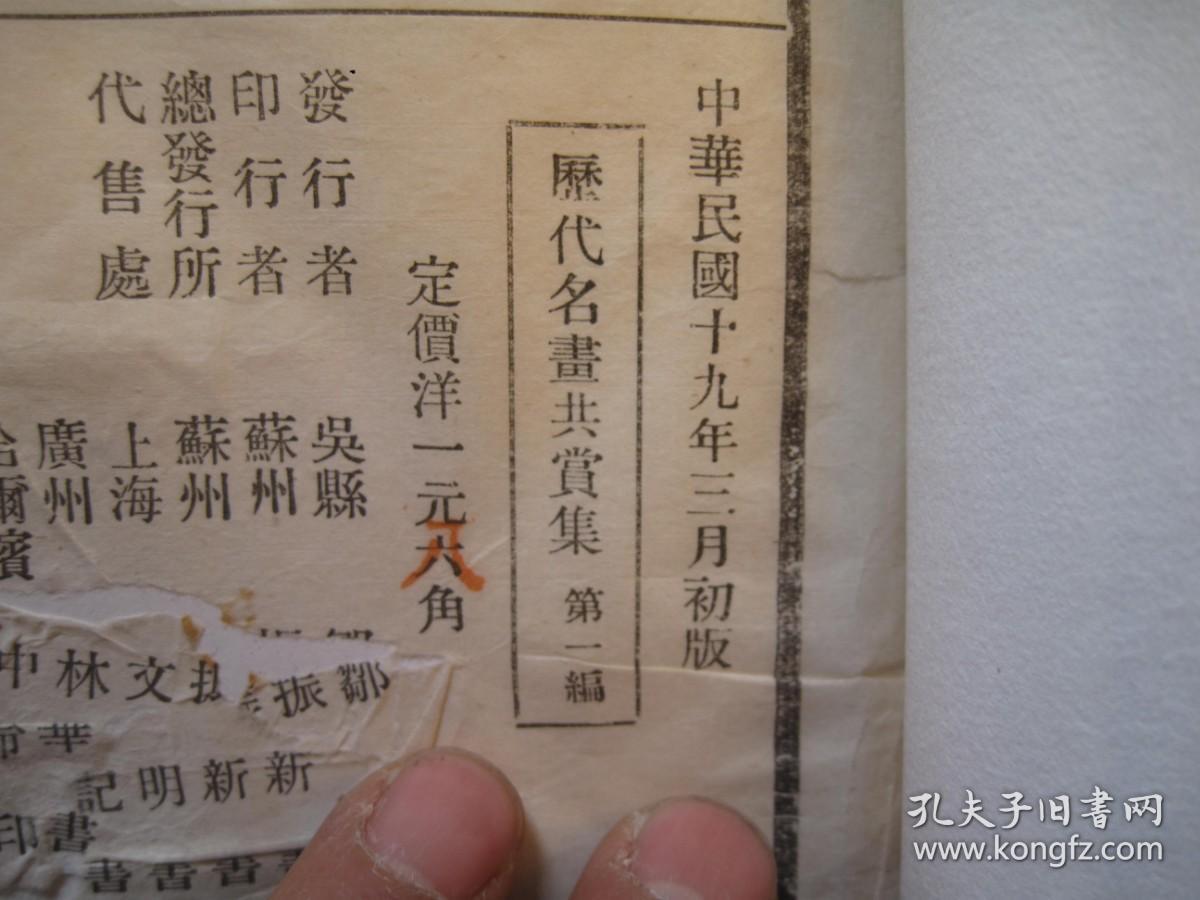 中華民國十九年三月初版
歷代名畫共賞集 第一編
定價洋一元六角
八
發行者 吳縣 鄒
印行者 蘇州 振新
總發行所 蘇州 振新書
代售處 上海 文明書
廣州 林記書
哈爾濱 中華書
印
孔夫子旧书网
www.kongfz.com